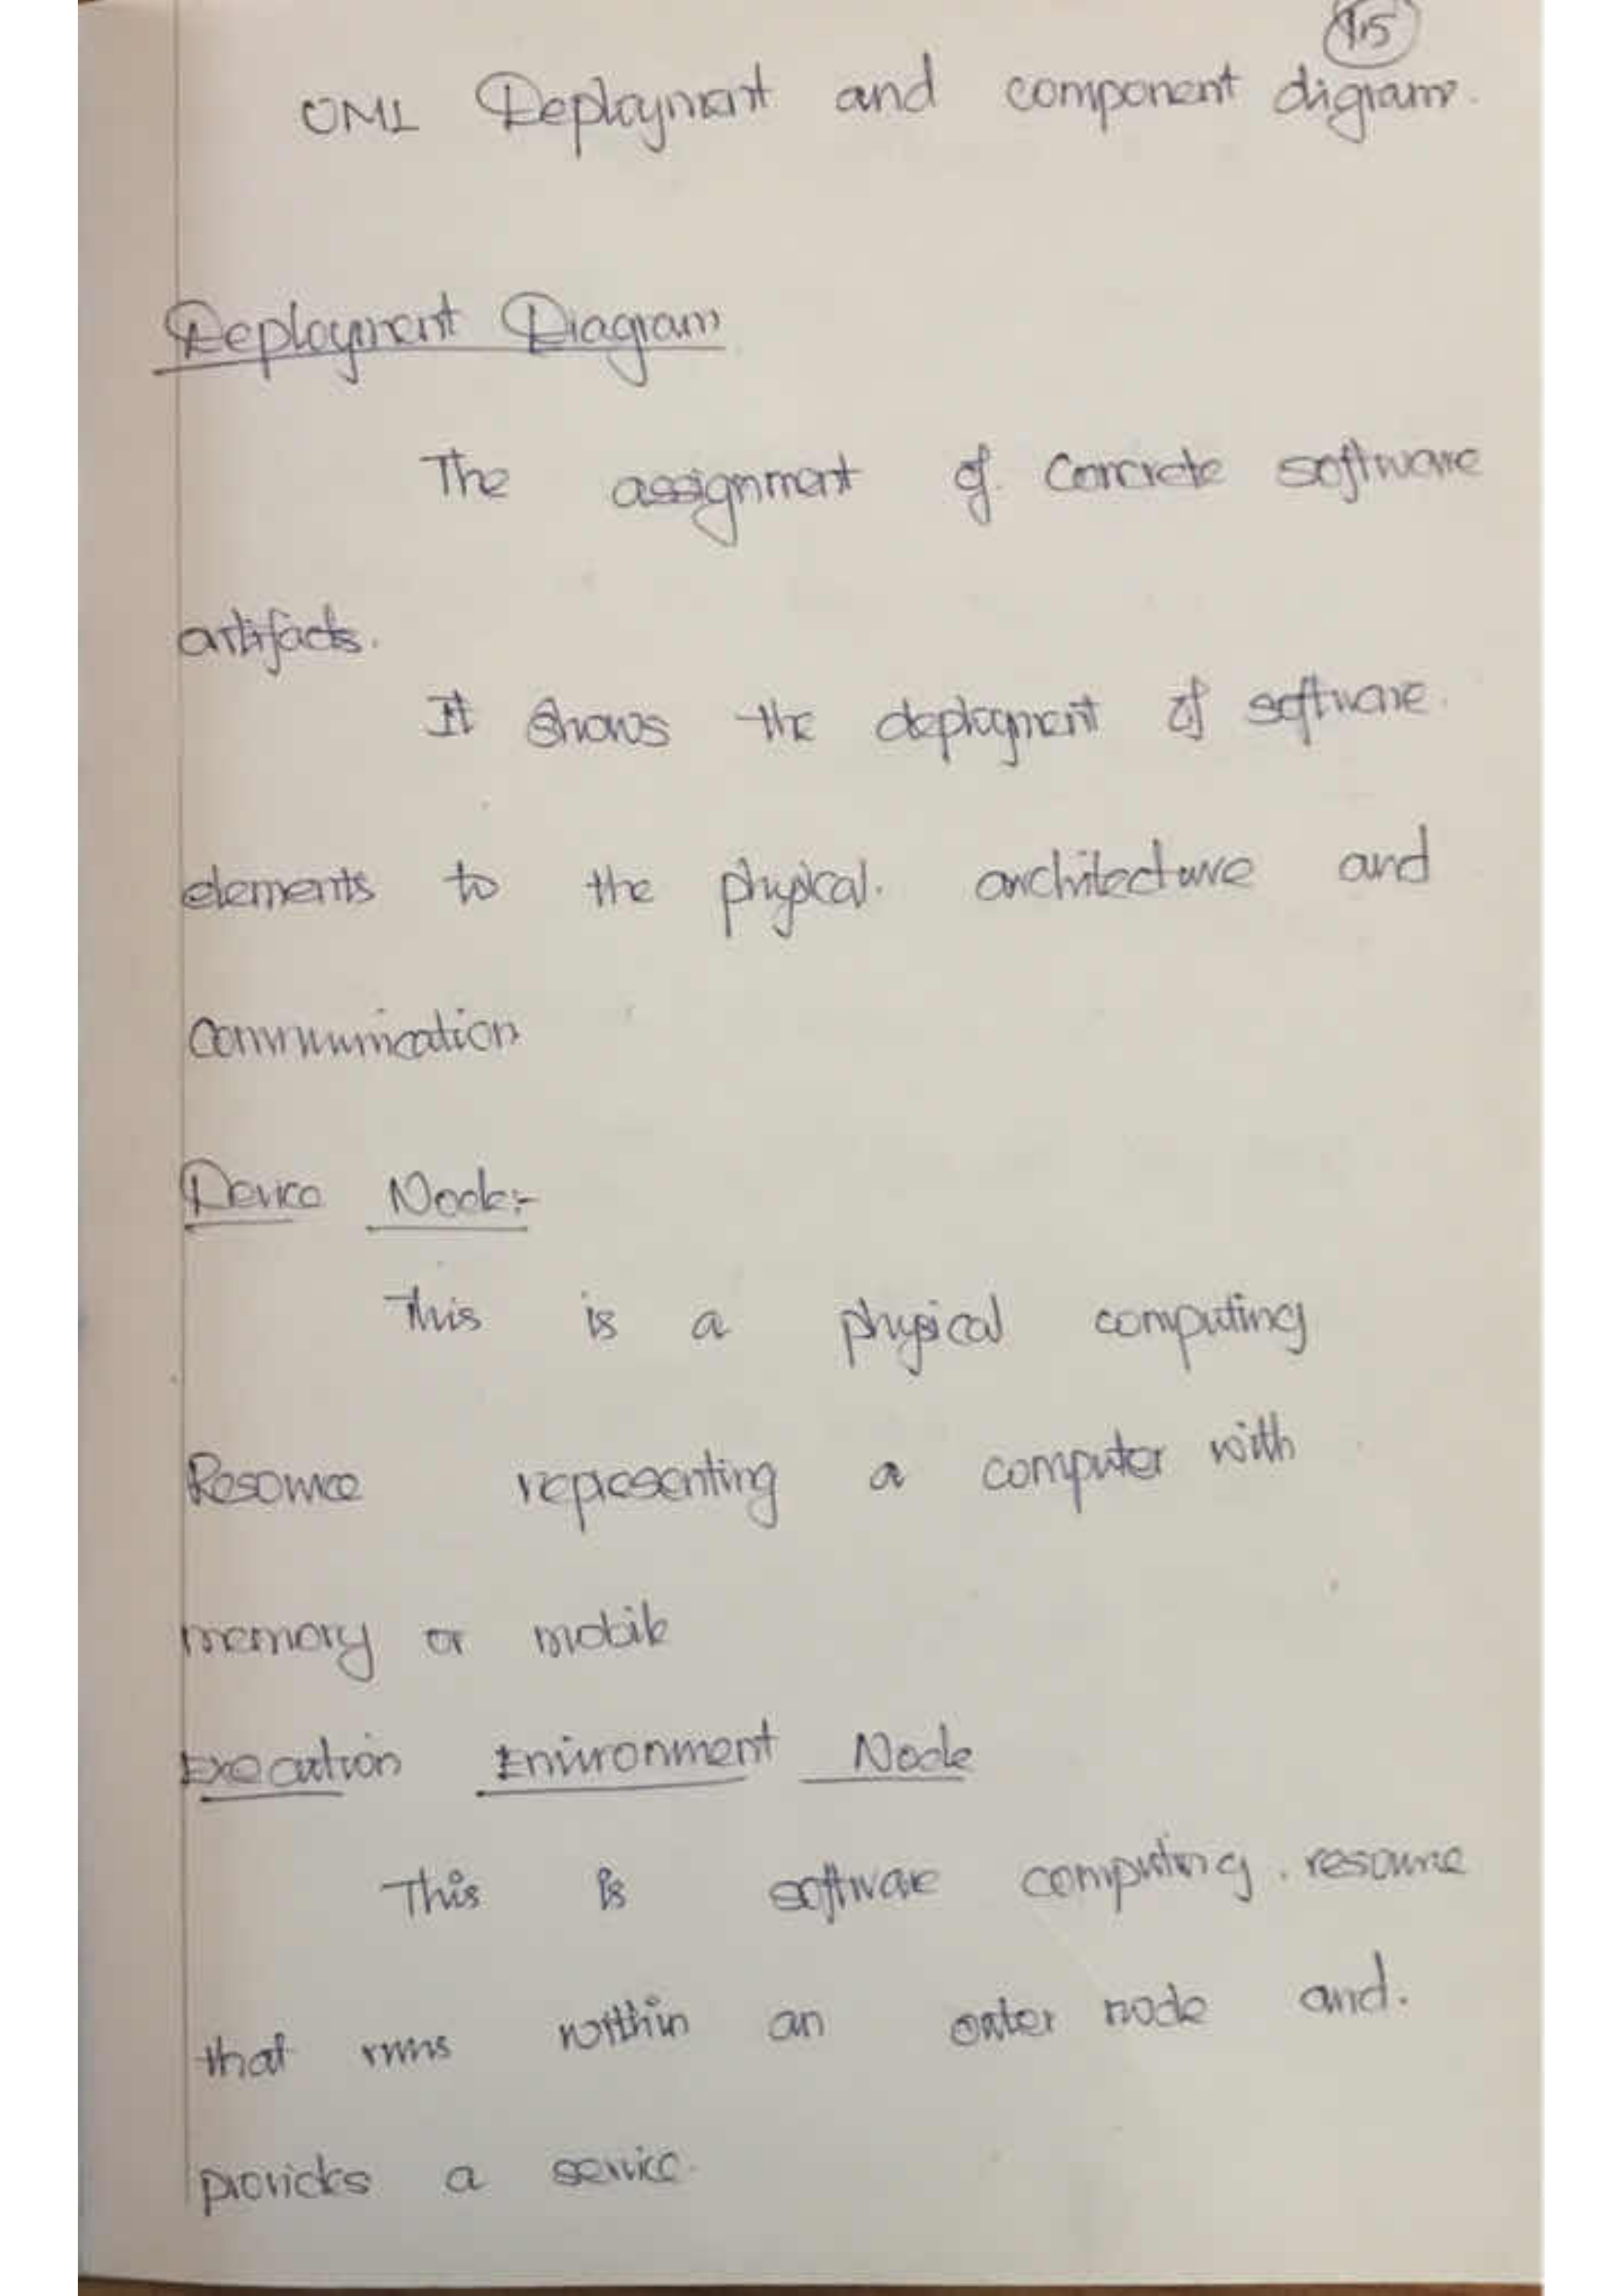 15
UML Deployment and component digram.
Deployment Diagram
The assignment of concrete software
artifacts.
It shows the deployment of software.
elements to the physical. architecture and
communication
Device Node:-
This is a physical computing
Resource representing a computer with
memory or mobile
Execution Environment Node
This is software computing. resource
that runs within an outer node and.
provides a service.